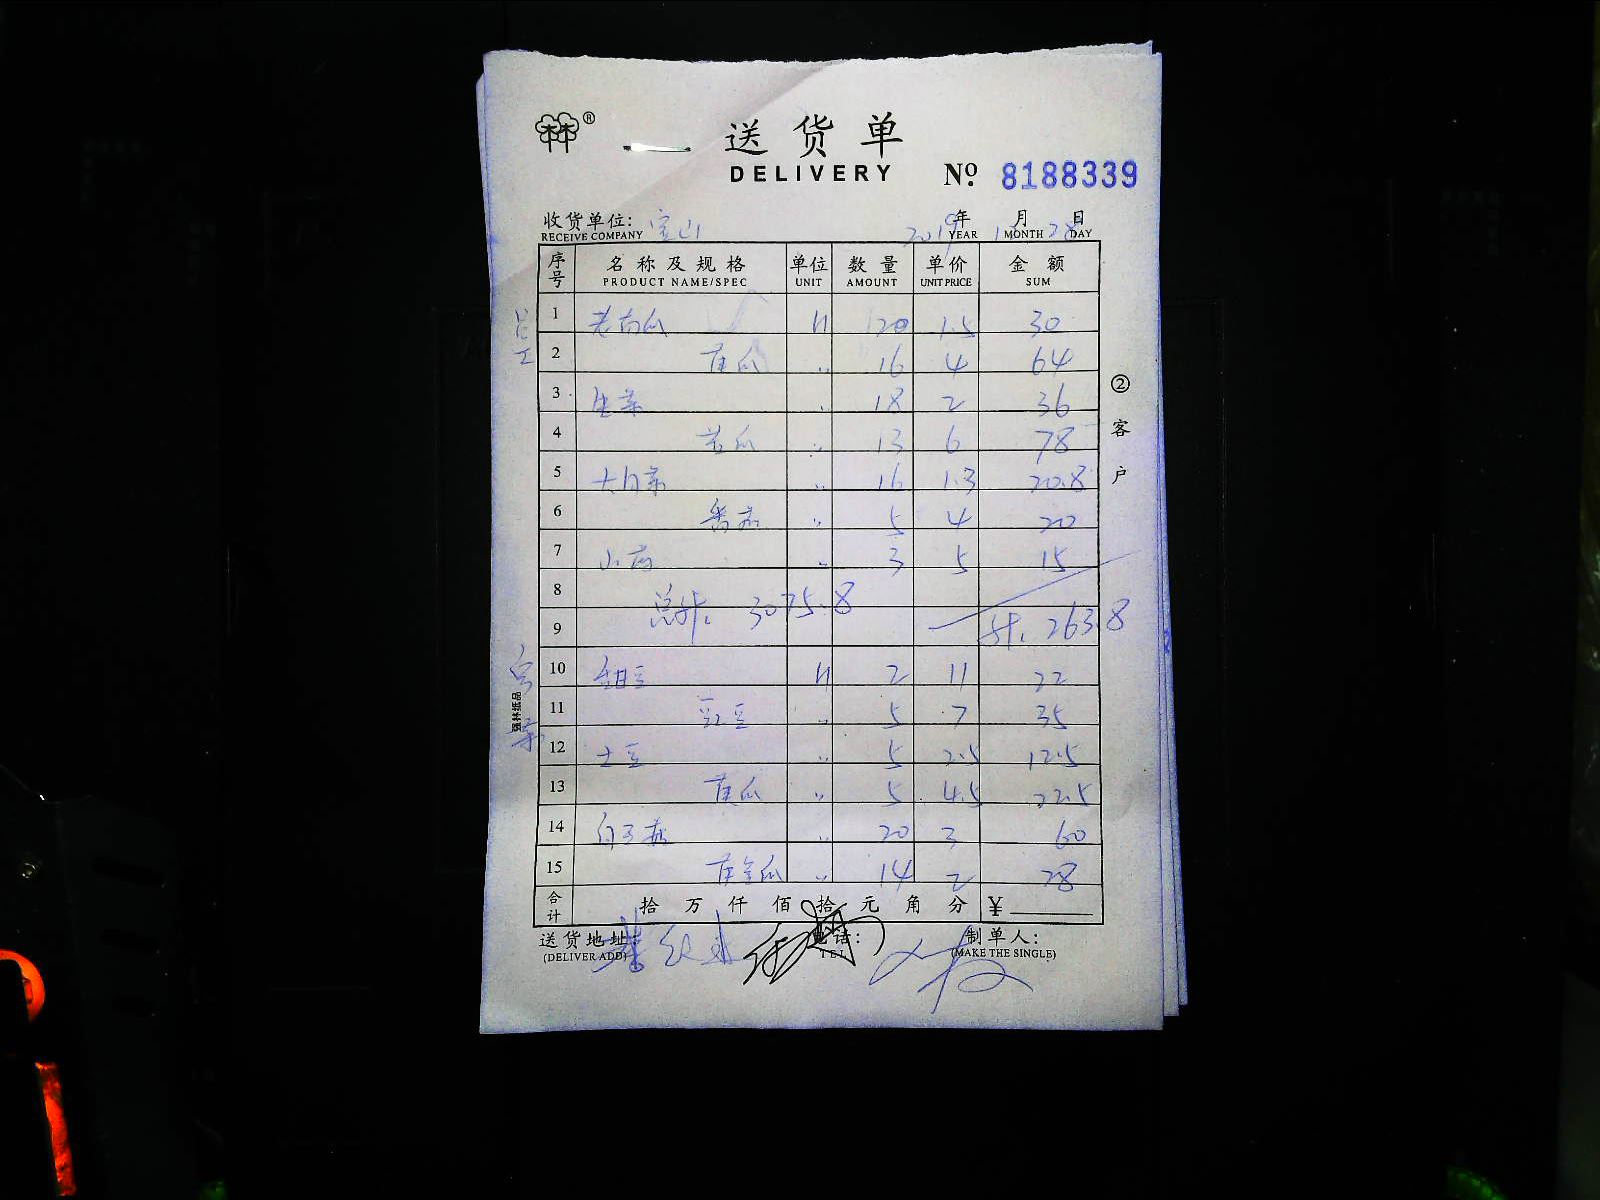 林®
送货单
DELIVERY
No. 8188339
收货单位: 宝山 2019年 月 28日
RECEIVE COMPANY YEAR MONTH DAY
序号 名称及规格 单位 数量 单价 金额
PRODUCT NAME/SPEC UNIT AMOUNT UNIT PRICE SUM
员工
1 老南瓜 斤 20 1.5 30
2 黄瓜 〃 16 4 64
3 生菜 〃 18 2 36
4 苦瓜 〃 13 6 78
5 大白菜 〃 16 1.3 20.8
6 番茄 〃 5 4 20
7 山药 〃 3 5 15
8 总计: 3075.8
9 计: 263.8
客菜
10 甜豆 斤 2 11 22
11 豇豆 〃 5 7 35
12 土豆 〃 5 2.5 12.5
13 黄瓜 〃 5 4.5 22.5
14 〃 20 3 60
15 黄金瓜 〃 14 2 28
合计 拾 万 仟 佰 拾 元 角 分 ¥
送货地址: 电话: 制单人:
(DELIVER ADD) TEL (MAKE THE SINGLE)
②客户
强林纸品